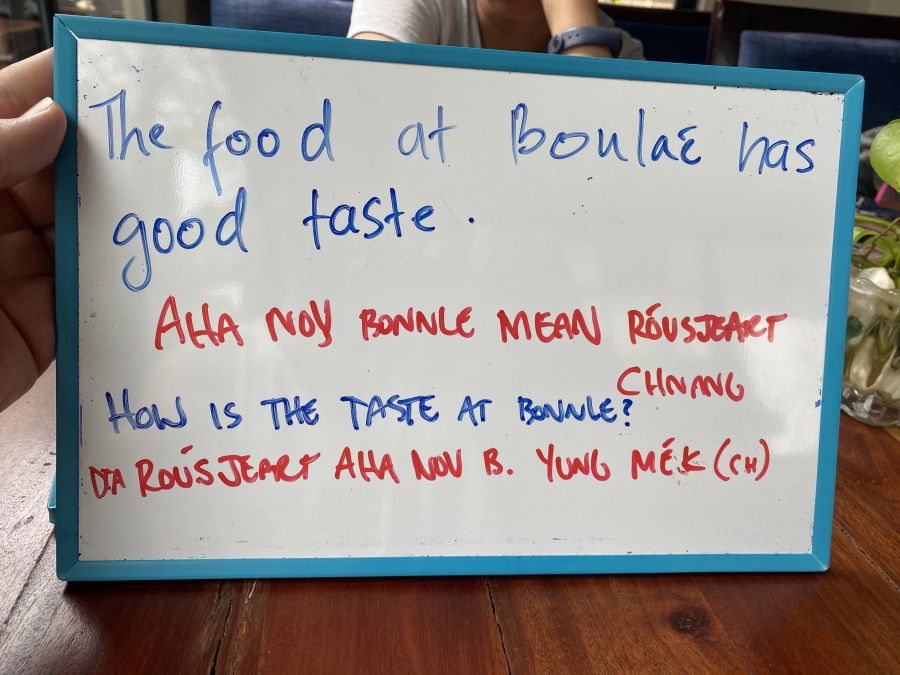 The food at Boulae has
good taste.
AHA NOV BONNLE MEAN RÓUSJEART
CHNANG
HOW IS THE TASTE AT BONNLE?
DIA ROÚSJEART AHA NOV B. YUNG MÉK (CH)